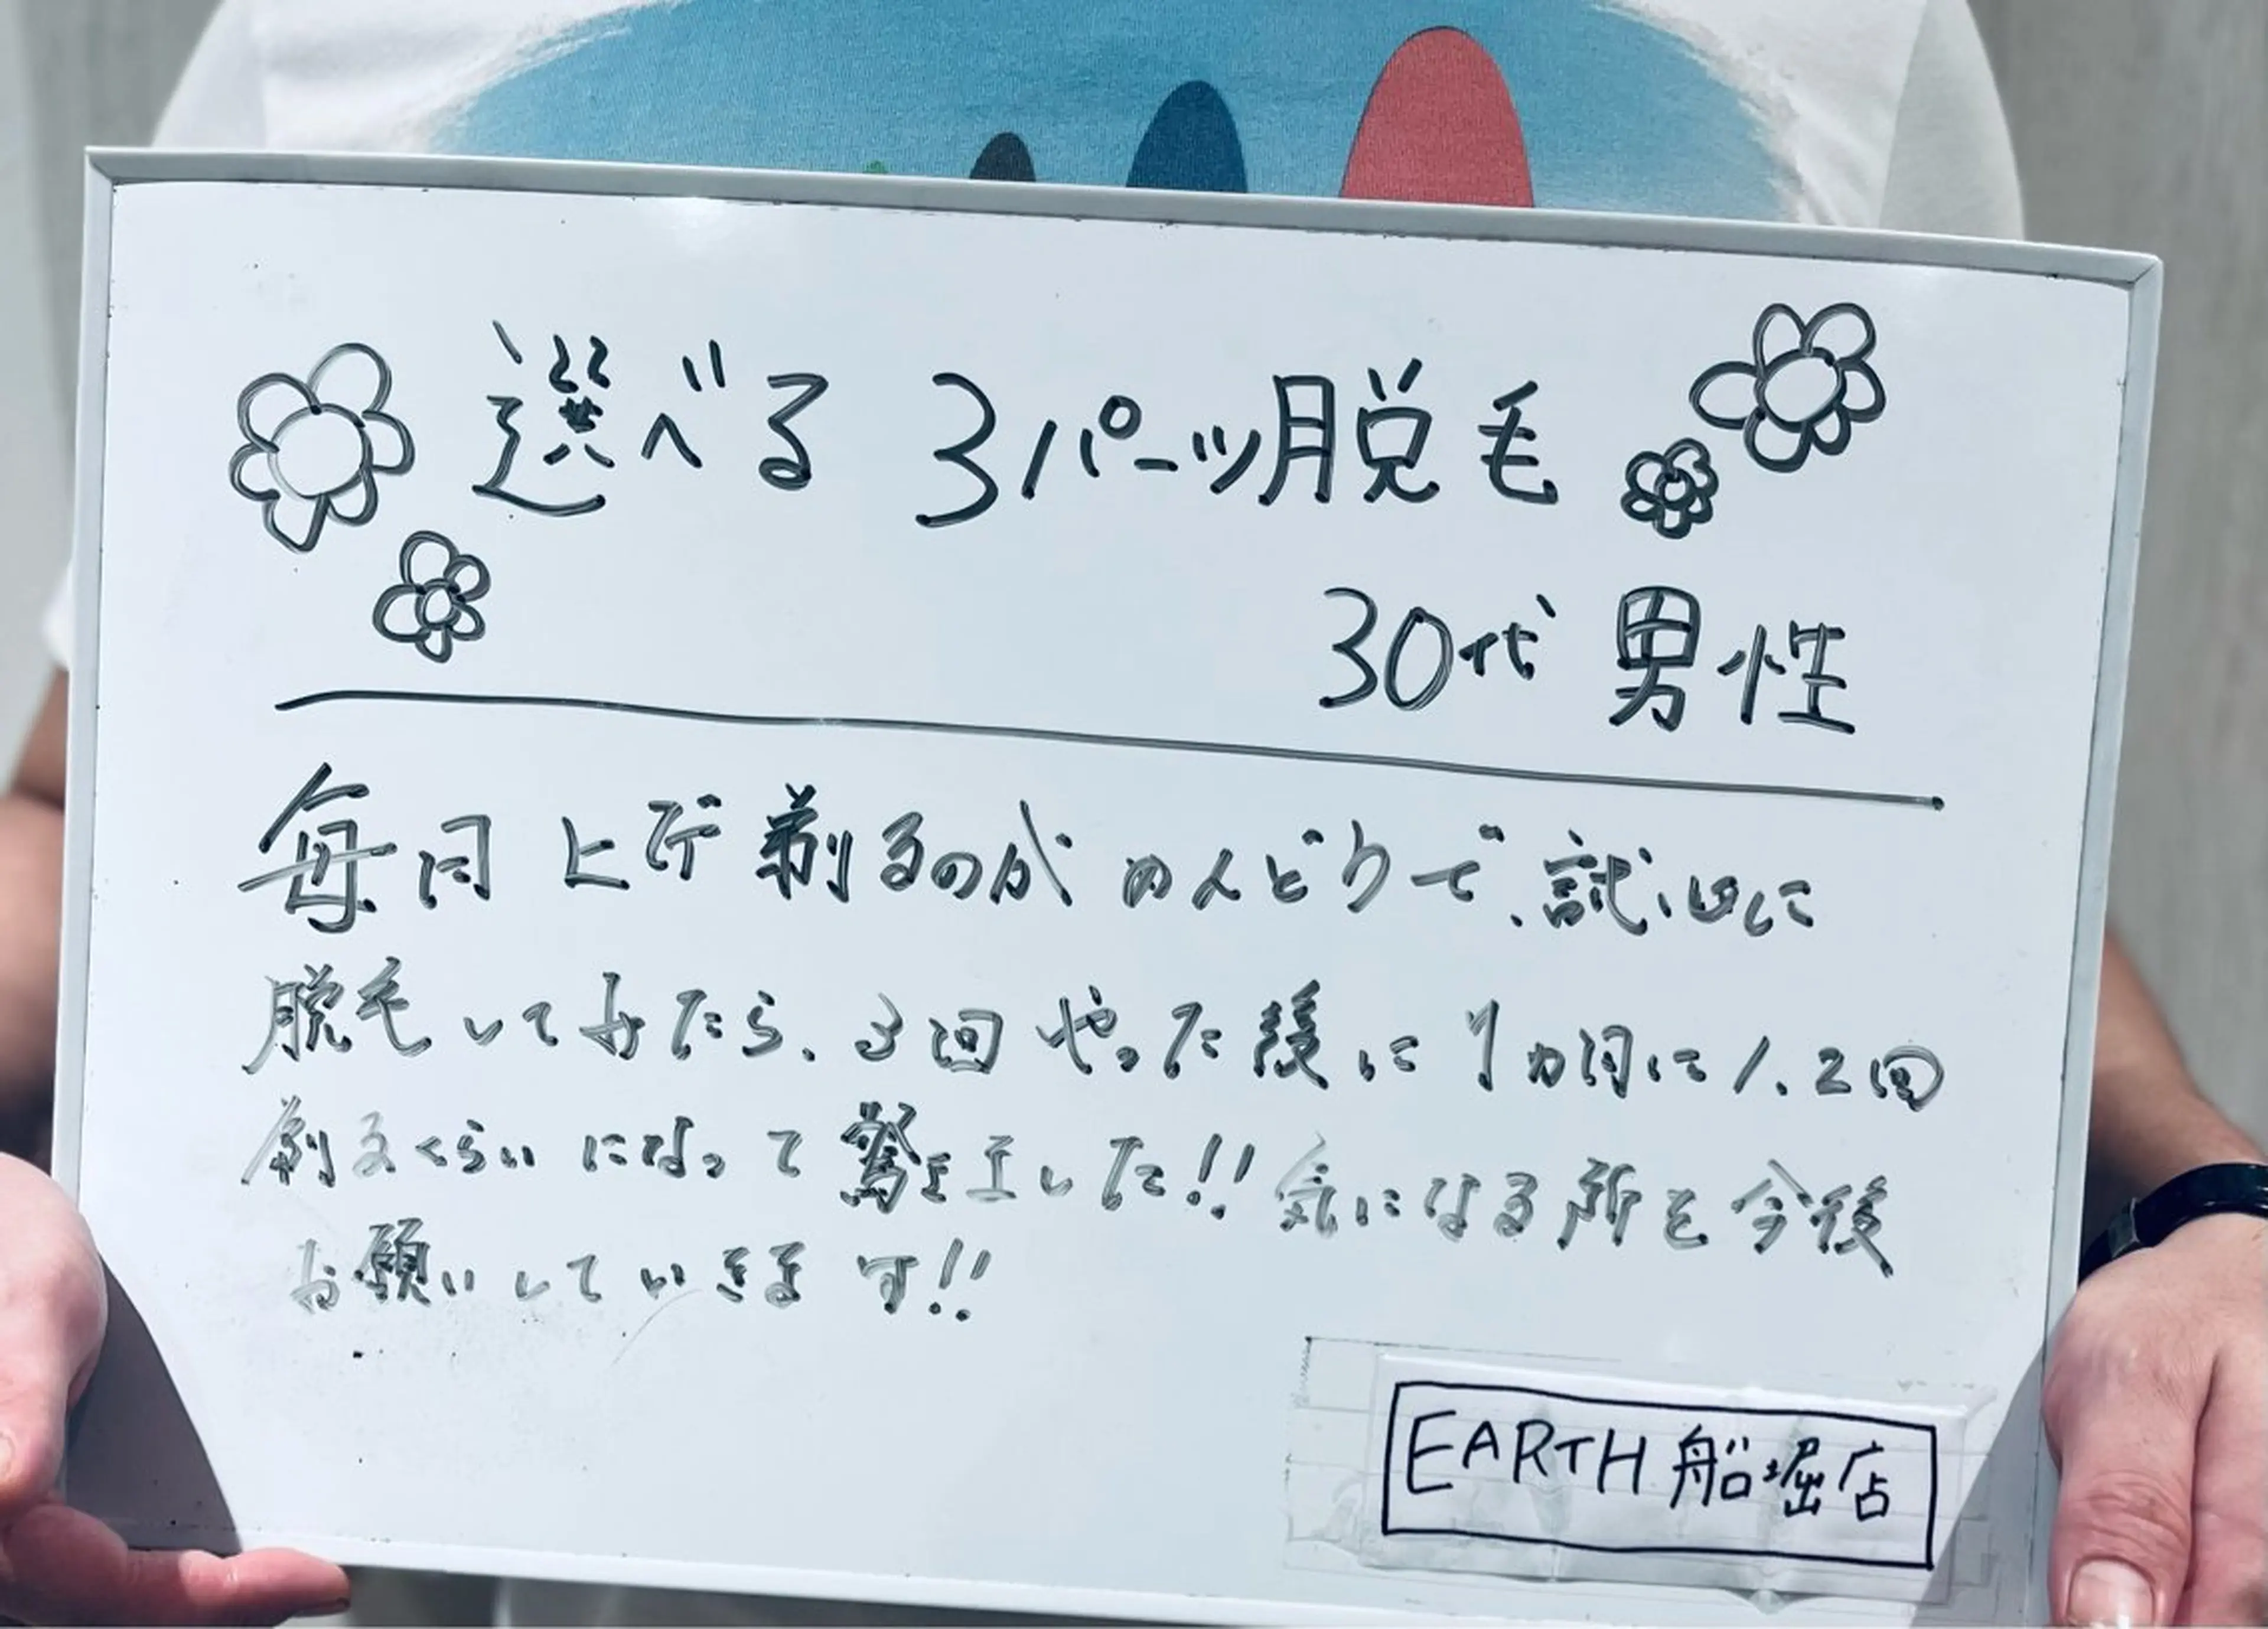 選べる 3パーツ脱毛
30代 男性
毎日ヒゲ剃るのがめんどうで、試しに
脱毛してみたら、3回やった後に1カ月に1、2回
剃るくらいになって驚きました!!気になる所を今後
お願いしていきます!!
EARTH 船堀店